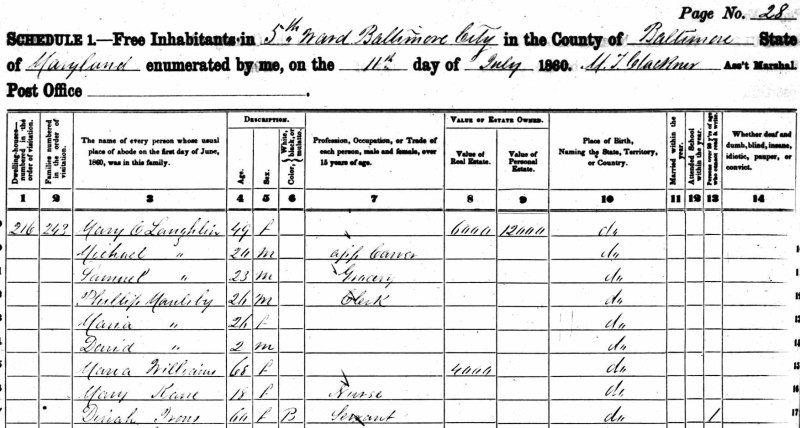 Page No. 28
SCHEDULE 1.—Free Inhabitants in 5th Ward Baltimore City in the County of Baltimore State
of Maryland enumerated by me, on the 11th day of July 1860. Ass't Marshal.
Post Office
Dwelling-houses—numbered in the order of visitation.
Families numbered in the order of visitation.
The name of every person whose usual place of abode on the first day of June, 1860, was in this family.
DESCRIPTION.
Age.
Sex.
Color, White, black, or mulatto.
Profession, Occupation, or Trade of each person, male and female, over 15 years of age.
VALUE OF ESTATE OWNED.
Value of Real Estate.
Value of Personal Estate.
Place of Birth, Naming the State, Territory, or Country.
Married within the year.
Attended School within the year.
Persons over 20 y'rs of age who cannot read & write.
Whether deaf and dumb, blind, insane, idiotic, pauper, or convict.
1 2 3 4 5 6 7 8 9 10 11 12 13 14
216 243 Mary O Laughlin 49 f 6000 12000 do
Michael " m app Carver do
Samuel " 23 m Grocery do
Phillip m Clerk do
Maria " f do
David " 2 m do
Maria Williams 68 f 4000 do
Mary Kane 18 f Nurse do
Dinah Irons 60 f B Servant do 1 17